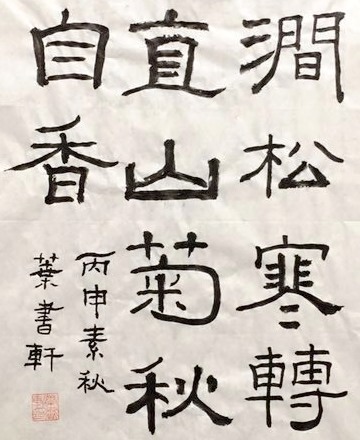 澗松寒轉
直山菊秋
自香
丙申素秋
葉書軒